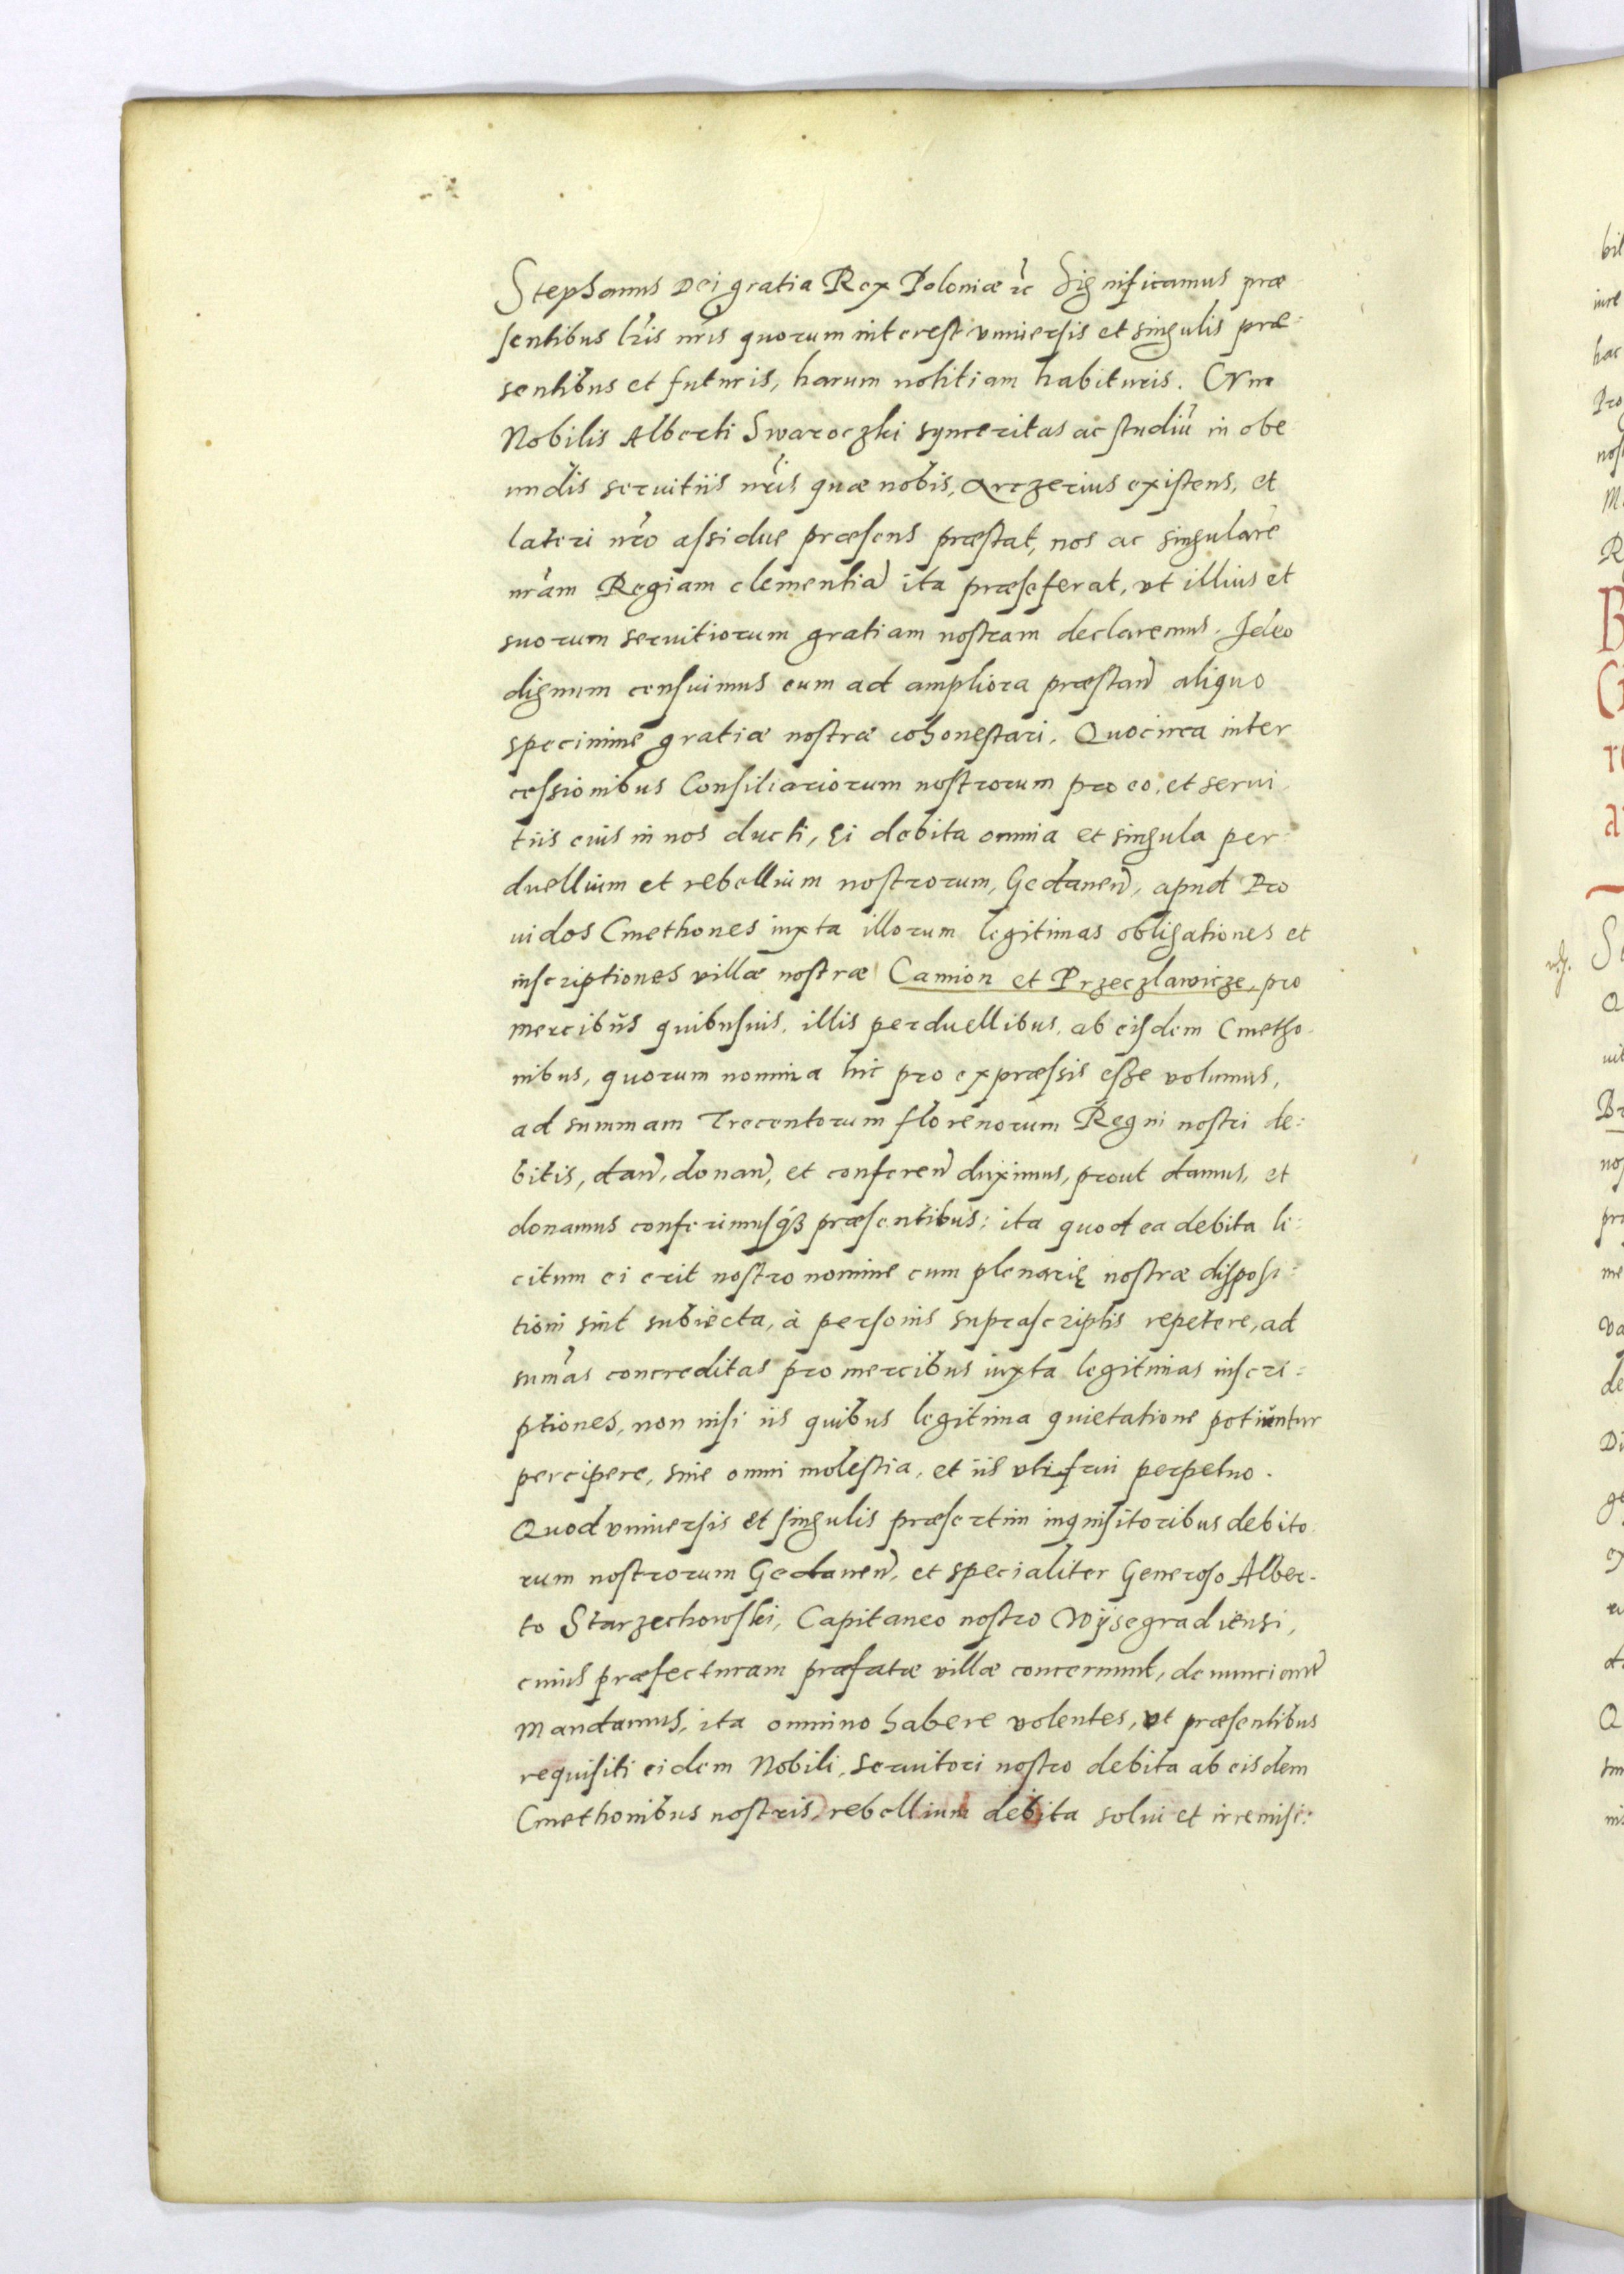 Stephanus Dei gratia Rex Poloniæ &c̃ Significamus præ
sentibus lr̃is nr̃is quorum interest vniuersis et singulis præ:
sentibus et futuris, harum notitiam habituris. Cum
Nobilis Alberti Swaroczki synceritas ac studiũ in obe
undis seruitiis nr̃is quæ nobis, Arczerius existens, et
lateri nr̃o assidue præsens præstat, nos ac singularẽ
nr̃am Regiam clementiã ita præseferat, vt illius et
suorum seruitiorum gratiam nostram declaremus. Ideo
dignum censuimus eum ad ampliora præstand̃ aliquo
specimine gratiæ nostræ cohonestari. Quocirca inter
cessionibus Consiliariorum nostrorum pro eo, et serui
tiis eius in nos ducti, Ei debita omnia et singula per:
duellium et rebellium nostrorum, Gedanen̄, apud Pro
uidos Cmethones iuxta illorum legitimas obligationes et
inscriptiones villæ nostræ Camion et Przeczlawicze, pro
mercibus quibusuis, illis perduellibus, ab eisdem Cmetho
nibus, quorum nomina hic pro expræssis esse volumus,
ad summam Trecentorum florenorum Regni nostri de:
bitis, dan̄, donan̄, et conferen̄ duximus, prout damus, et
donamus conferimusq́ꝫ præsentibus: ita quod ea debita li:
citum ei erit nostro nomine cum plenarię nostræ disposi:
tioni sint subiecta, à personis suprascriptis repetere, ad
sum̃as concreditas pro mercibus iuxta legitimas inscri:
ptiones, non nisi iis quibus legitima quietatione potiuntur
percipere, sine omni molestia, et iis vti frui perpetuo.
Quod vniuersis et singulis præsertim inquisitoribus debito
rum nostrorum Gedanen̄, et specialiter Generoso Alber-
to Starzechowski, Capitaneo nostro Wÿsegradiensi,
cuius præfecturam præfatæ villæ concernunt, denunciantes
Mandamus, ita omnino habere volentes, vt præsentibus
requisiti eidem Nobili, seruitori nostro debita ab eisdem
Cmethonibus nostris, rebellium debita solui et irremisi: